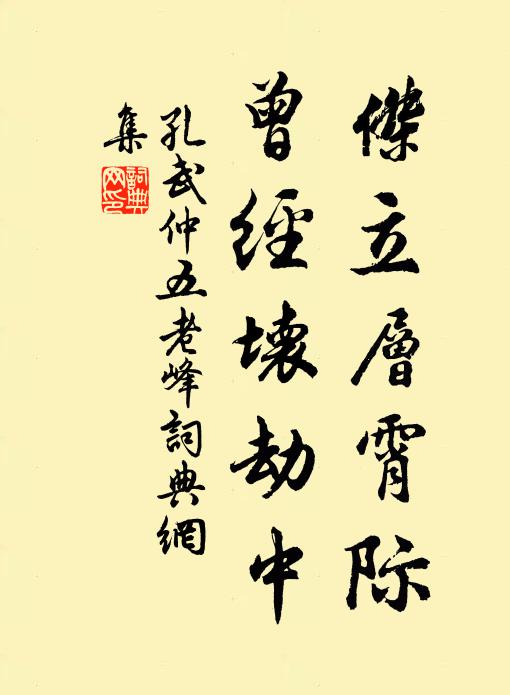 傑立層霄际
曾經壞劫中
孔武仲五老峰詞典網
集
詞典
网印